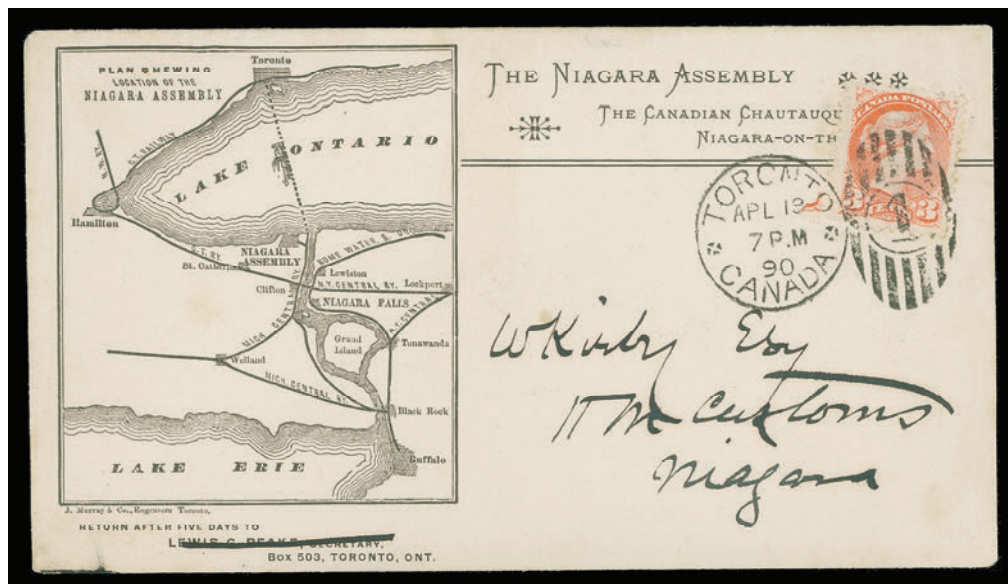 PLAN SHEWING
LOCATION OF THE
NIAGARA ASSEMBLY
Toronto
G.T. RAILWAY
LAKE ONTARIO
Hamilton
G.T. RY.
St. Catherines
NIAGARA
ASSEMBLY
ROME WATER. &
Lewiston
N.Y. CENTRAL RY.
Lockport
Clifton
NIAGARA FALLS
MICH CENTRAL RY.
N.Y. CENTRAL
Grand
Island
Tonawanda
Welland
MICH. CENTRAL RY.
Black Rock
Buffalo
LAKE ERIE
J. Murray & Co., Engravers Toronto,
RETURN AFTER FIVE DAYS TO
LEWIS C. PEAKE, SECRETARY,
BOX 503, TORONTO, ONT.
THE NIAGARA ASSEMBLY
THE CANADIAN CHAUTAUQU
NIAGARA-ON-TH
CANADA POSTAGE
3 3
TORONTO
APL 19
7 P.M
90
CANADA
W Kirby Esq
H M Customs
Niagara